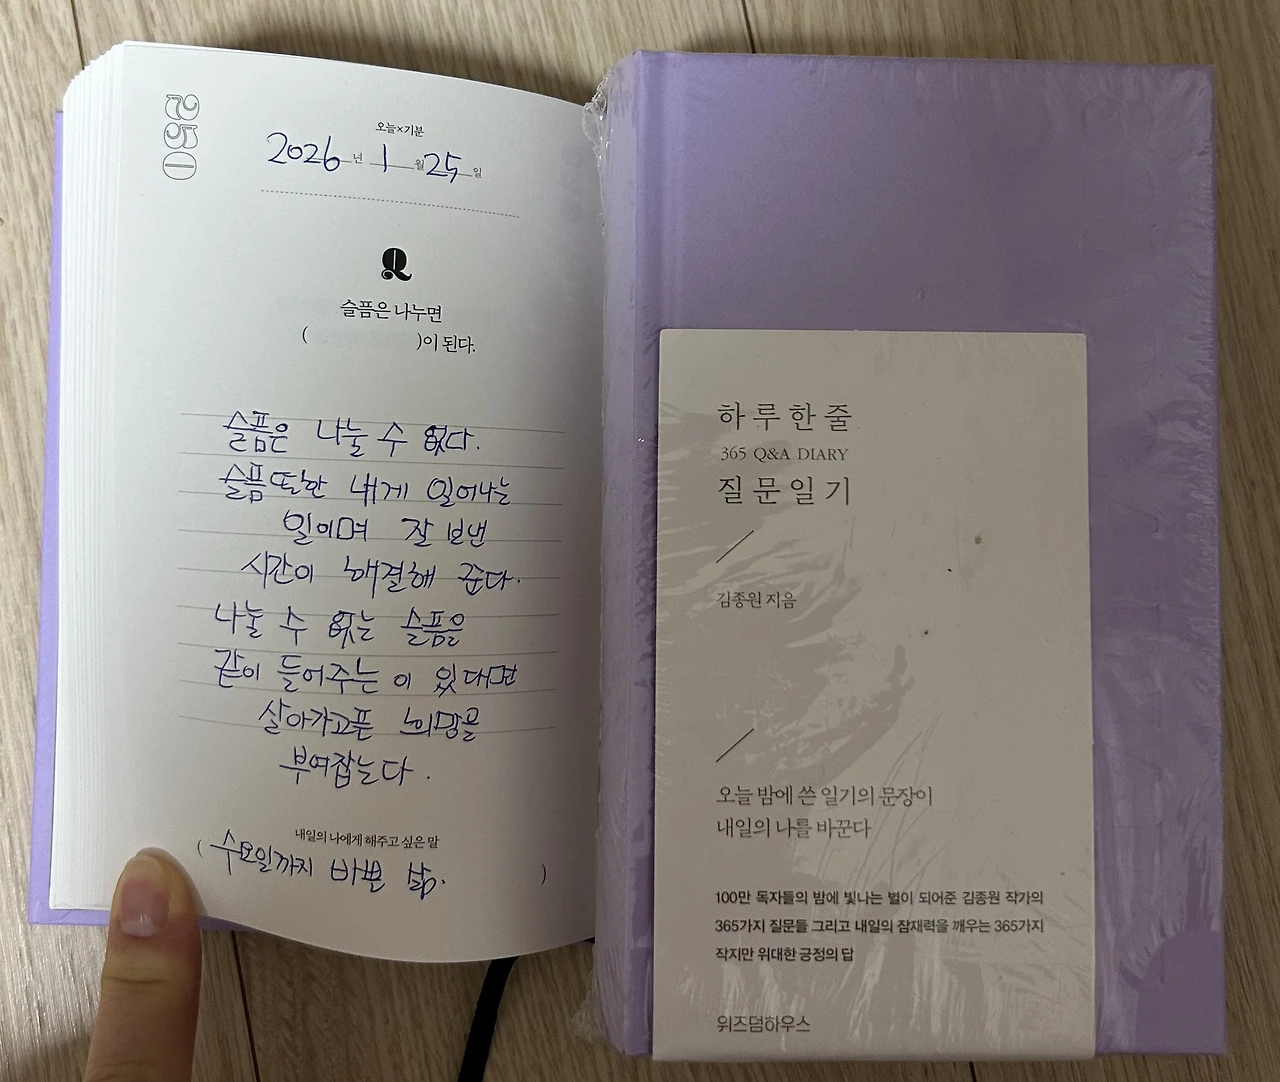 250
오늘×기분
2026년 1월 25일
Q
슬픔은 나누면
( )이 된다.
슬픔은 나눌 수 없다.
슬픔또한 내게 일어나는
일이며 잘 보낸
시간이 해결해 준다.
나눌 수 없는 슬픔을
같이 들어주는 이 있다면
살아가고픈 희망을
부여잡는다.
내일의 나에게 해주고 싶은 말
(수요일까지 바쁜 삶. )
하루한줄
365 Q&A DIARY
질문일기
김종원 지음
오늘 밤에 쓴 일기의 문장이
내일의 나를 바꾼다
100만 독자들의 밤에 빛나는 별이 되어준 김종원 작가의
365가지 질문들 그리고 내일의 잠재력을 깨우는 365가지
작지만 위대한 긍정의 답
위즈덤하우스